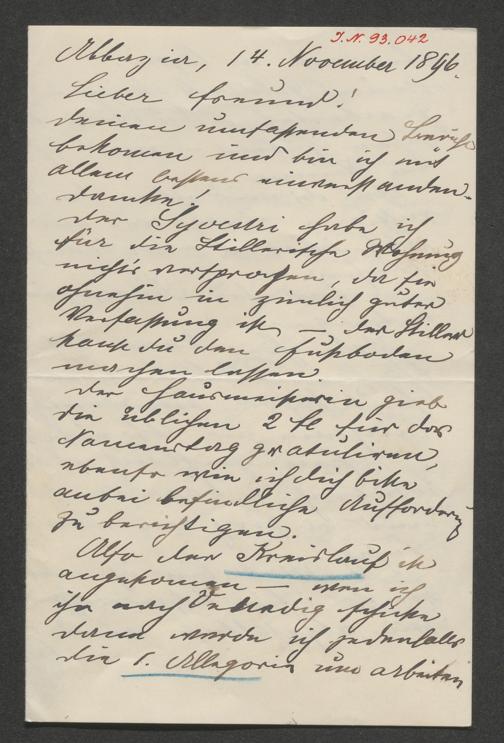 I.N. 93.042
Abbazia, 14. November 1896.
Lieber Freund!
Deinen umfassenden Bericht
bekomen und bin ich mit
allem bestens einverstanden.
Danke!
Der Sylvestri habe ich
für die Stillerische Wohnung
nichts versprochen, da sie
ohnehin in zimlich guter
Verfassung ist — der Stiller
kanst du den Fussboden
machen lassen.
Der Hausmeisterin gieb
die üblichen 2 fl für das
Namenstag gratuliren,
ebenso wie ich dich bitte
anbei befindliche Aufforderung
zu berichtigen.
Also der Kreislauf ist
angekomen — wen ich
ihn nach Venedig schicke
dann werde ich jedenfalls
die 1. Allegorie um arbeiten